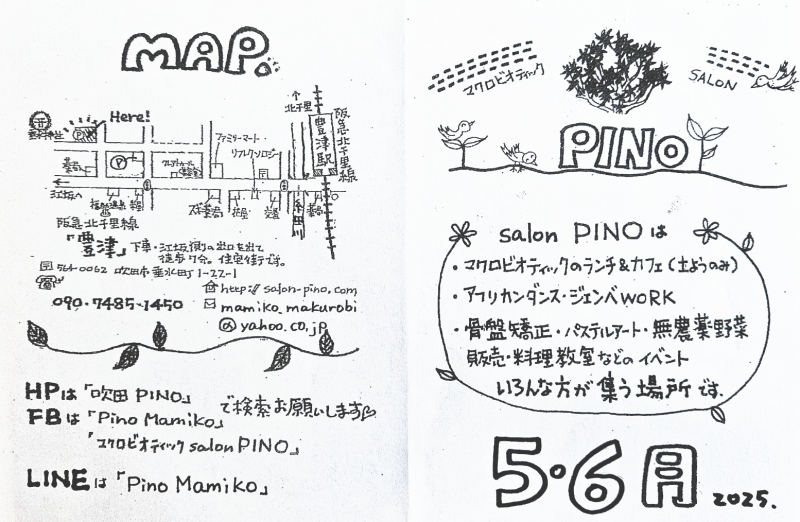 MAP.
Here!
P
ファミリーマート
リフレクソロジー
↑
北千里
豊津駅
阪急北千里線
薬局
江坂へ
阪急北千里線
「豊津」下車・江坂側の出口を出て
徒歩7分。住宅街です。
564-0062 吹田市垂水町1-22-1
http://salon-pino.com
090-7485-1450
mamiko_makurobi
@yahoo.co.jp
HPは「吹田 PINO」
で検索お願いします
FBは「Pino Mamiko」
「マクロビオティック salon PINO」
LINEは「Pino Mamiko」
マクロビオティック
SALON
PINO
salon PINOは
・マクロビオティックのランチ&カフェ(土ようのみ)
・アフリカンダンス・ジェンベWORK
・骨盤矯正・パステルアート・無農薬野菜
販売・料理教室などのイベント
いろんな方が集う場所です。
5・6月
2025.